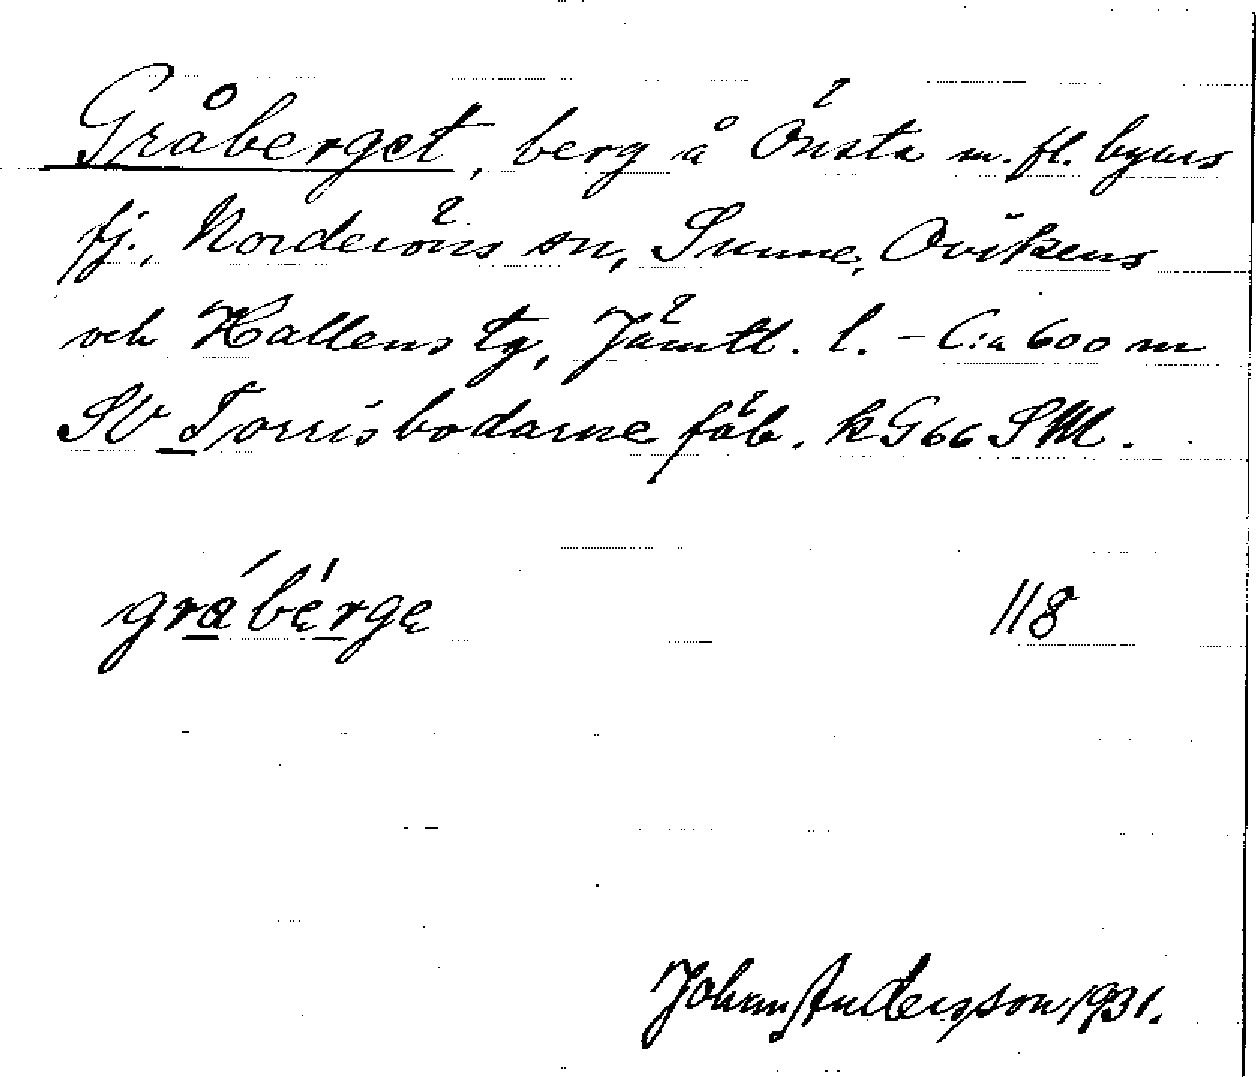 Gråberget, berg å Önsta m.fl. byars
fj., Norderöns sn, Sunne, Ovikens
och Hallens tg, Jämtl. l. – C:a 600 m
SV Torrisbodarne fäb. kG66 SM.
gråbęrgę 118
Johan Andersson 1931.